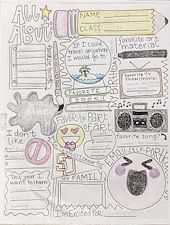 All
About
NAME
CLASS
If I could
travel anywhere
I would go
to
favorite art
material
FAVORITE
BOOK
Favorite TV
Show/movie:
I don't
like
Favorite Part
of art
favorite song:
This year I
want to learn
FAMIL
I'm Excited for